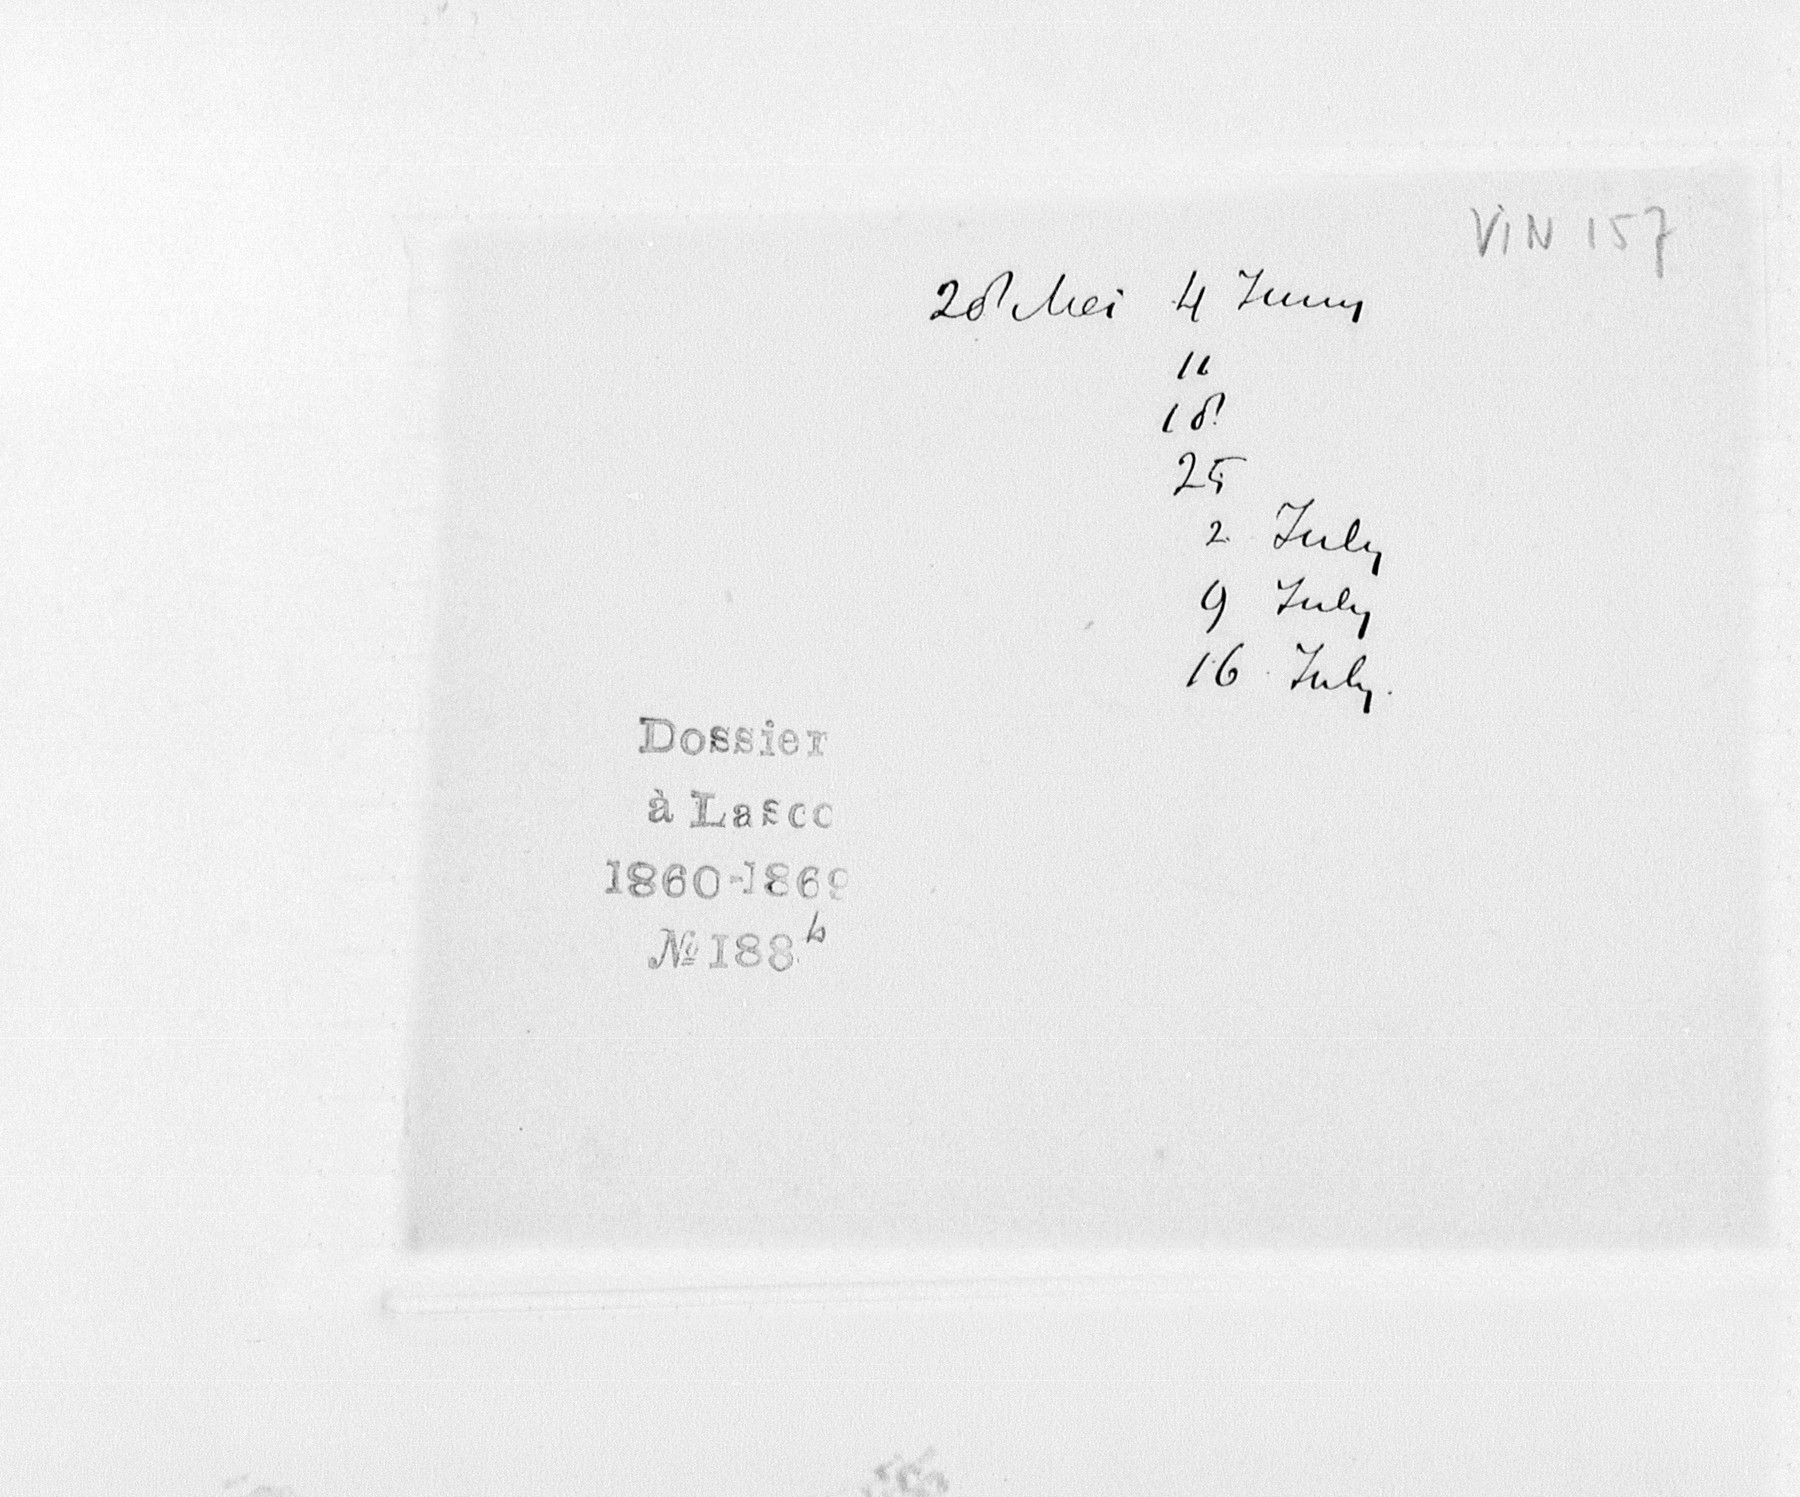 VIN 157
28 Mei 4 Juny
11
18
25
2 July
9 July
16 July.
Dossier
à Lasco
1860-1869
№ 188 b